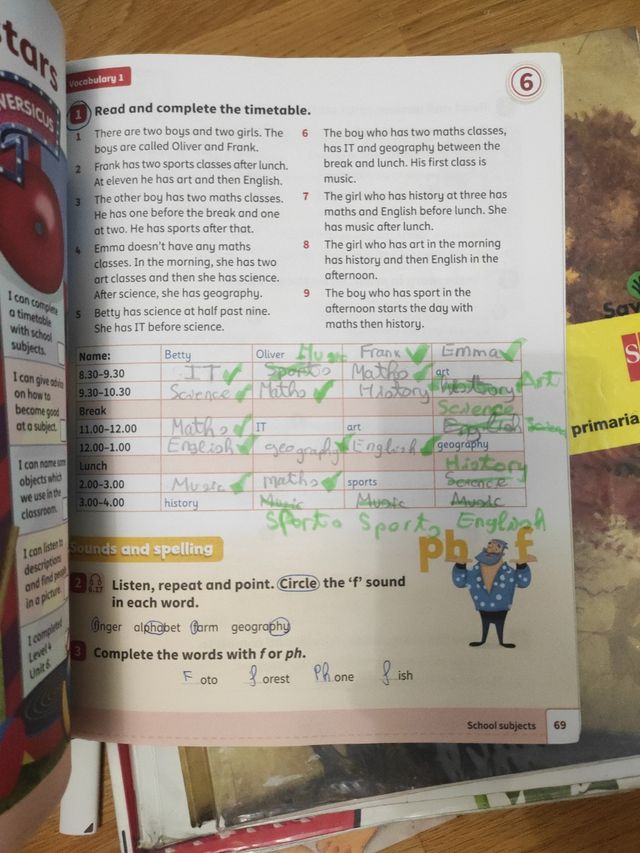 stars
VERSICUS
I can complete
a timetable
with school
subjects.
I can give advice
on how to
become good
at a subject.
I can name some
objects which
we use in the
classroom.
I can listen to
descriptions
and find people
in a picture.
I completed
Level 4
Unit 6.
Vocabulary 1
6
1 Read and complete the timetable.
1 There are two boys and two girls. The
boys are called Oliver and Frank.
2 Frank has two sports classes after lunch.
At eleven he has art and then English.
3 The other boy has two maths classes.
He has one before the break and one
at two. He has sports after that.
4 Emma doesn't have any maths
classes. In the morning, she has two
art classes and then she has science.
After science, she has geography.
5 Betty has science at half past nine.
She has IT before science.
6 The boy who has two maths classes,
has IT and geography between the
break and lunch. His first class is
music.
7 The girl who has history at three has
maths and English before lunch. She
has music after lunch.
8 The girl who has art in the morning
has history and then English in the
afternoon.
9 The boy who has sport in the
afternoon starts the day with
maths then history.
Name: Betty Oliver Music Frank Emma
8.30–9.30 IT Sports Maths art
9.30–10.30 Science Maths History History Art
Break Science
11.00–12.00 Maths IT art English Science
12.00–1.00 English geography English geography
Lunch History
2.00–3.00 Music maths sports Science
3.00–4.00 history Music Music Music
Sports Sports English
Sounds and spelling
ph f
2 6.17 Listen, repeat and point. Circle the 'f' sound
in each word.
finger alphabet farm geography
3 Complete the words with f or ph.
F oto f orest Ph one f ish
School subjects 69
Sav
S
primaria